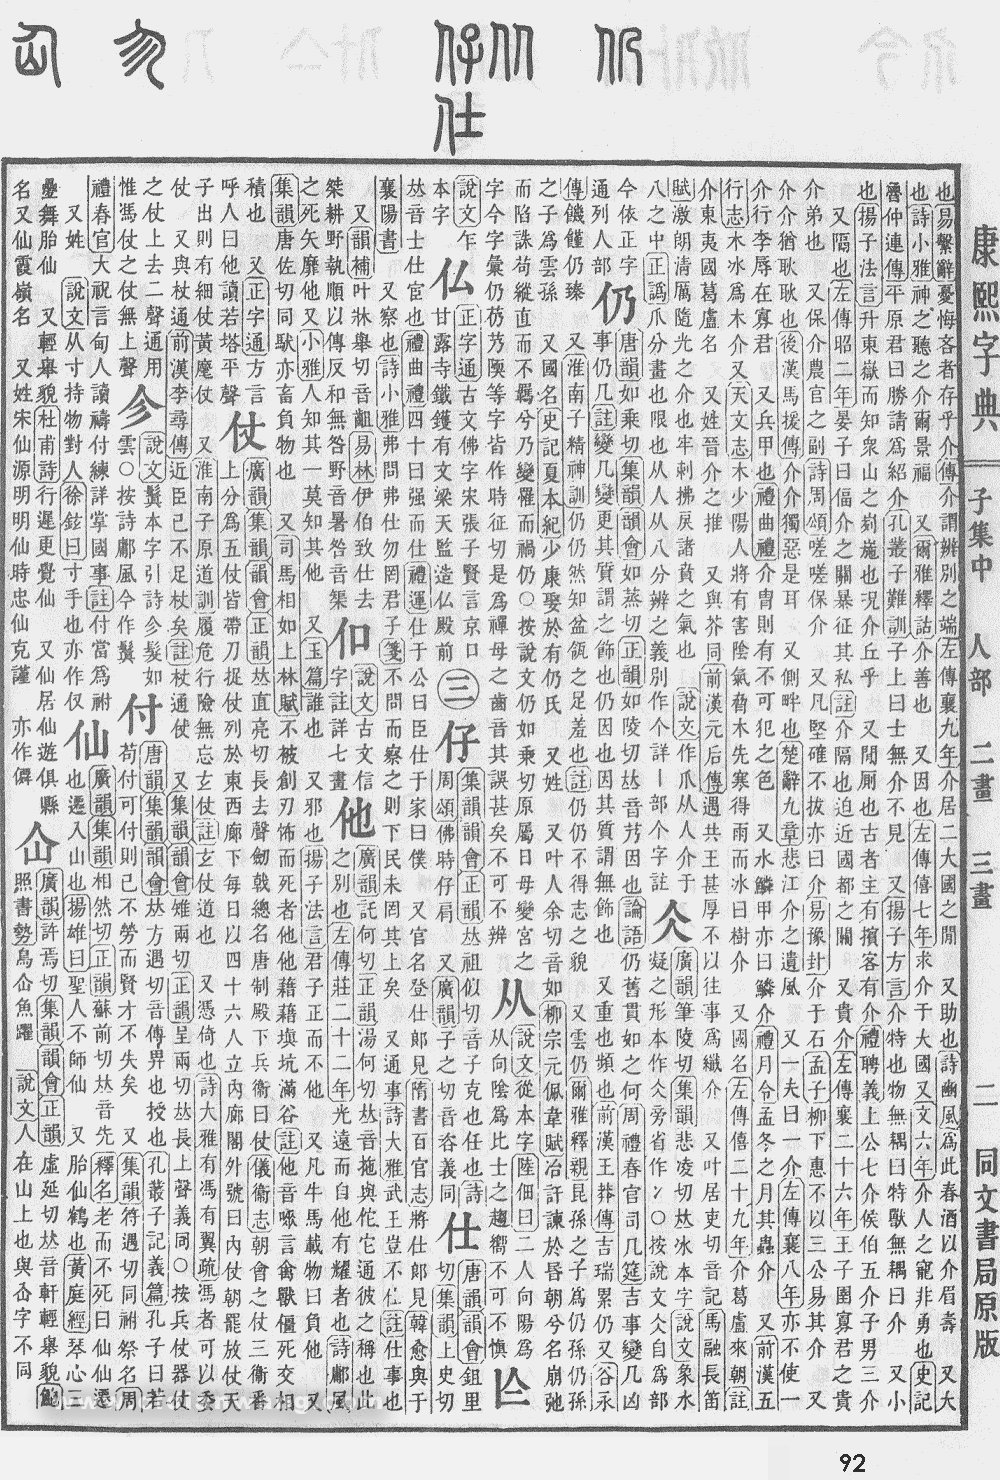 康熙字典 子集中 人部 二畫 三畫 二 同文書局原版
也易繫辭憂悔吝者存乎介傳介謂辨別之端左傳襄九年介居二大國之閒 又助也詩豳風為此春酒以介眉壽 又大
也詩小雅神之聽之介爾景福 又爾雅釋詁介善也 又因也左傳僖七年求介于大國 又文六年介人之寵非勇也史記
魯仲連傳平原君曰勝請爲紹介孔叢子雜訓子上曰士無介不見 又揚子方言介特也物無耦曰特獸無耦曰介 又小
也揚子法言升東嶽而知衆山之峛崺也况介丘乎 又閒厠也古者主有擯客有介禮聘義上公七介侯伯五介子男三介
又隔也左傳昭二年晏子曰偪介之關暴征其私註介隔也迫近國都之關 又貴介左傳襄二十六年王子圍寡君之貴
介弟也 又保介農官之副詩周頌嗟嗟保介 又凡堅確不拔亦曰介易豫卦介于石孟子柳下惠不以三公易其介 又
介介猶耿耿也後漢馬援傳介介獨惡是耳 又側畔也楚辭九章悲江介之遺風 又一夫曰一介左傳襄八年亦不使一
介行李辱在寡君 又兵甲也禮曲禮介冑則有不可犯之色 又水鱗甲亦曰鱗介禮月令孟冬之月其蟲介 又前漢五
行志木冰爲木介又天文志木少陽人將有害陰氣脅木先寒得雨而冰曰樹介 又國名左傳僖二十九年介葛盧來朝註
介東夷國葛盧名 又姓晉介之推 又與芥同前漢元后傳遇共王甚厚不以往事爲纖介 又叶居吏切音記馬融長笛
賦激朗清厲隨光之介也牢剌拂戾諸賁之氣也 說文作爪从人介于
八之中正譌爪分畫也限也从人从八分辨之義別作个詳丨部个字註
仌 廣韻筆陵切集韻悲凌切𠀤冰本字說文象水
凝之形本作仌旁省作冫○按說文仌自爲部
今依正字
通列人部
仍 唐韻如乘切集韻韻會如蒸切正韻如陵切𠀤音艿因也論語仍舊貫如之何周禮春官司几筵吉事變几凶
事仍几註變几變更其質謂之飾也仍因也因其質謂無飾也 又重也頻也前漢王莽傳吉瑞累仍又谷永
傳饑饉仍臻 又淮南子精神訓仍仍然知盆瓴之足羞也註仍仍不得志之貌 又雲仍爾雅釋親昆孫之子爲仍孫仍孫
之子爲雲孫 又國名史記夏本紀少康娶於有仍氏 又姓 又叶人余切音如柳宗元佩韋賦冶訏諫於昏朝兮名崩弛
而陷誅苟縱直而不羈兮乃變罹而禍仍○按說文仍如乘切原屬日母變宮之
字今字彙仍艿艿陾等字皆作時征切是爲禪母之齒音其誤甚矣不可不辨
从 說文從本字陸佃曰二人向陽爲
从向陰爲比士之趨嚮不可不愼
亾 說文乍
本字
仏 正字通古文佛字宋張子賢言京口
甘露寺鐵鑊有文梁天監造仏殿前
三
仔 集韻韻會正韻𠀤祖似切音子克也任也詩
周頌佛時仔肩 又廣韻子之切音咨義同
仕 唐韻韻會鉏里
切集韻上史切
𠀤音士仕宦也禮曲禮四十曰强而仕禮運仕于公曰臣仕于家曰僕 又官名登仕郞見隋書百官志將仕郞見韓愈與于
襄陽書 又察也詩小雅弗問弗仕勿罔君子箋不問而察之則下民未罔其上矣 又通事詩大雅武王豈不仕註仕事也
又韻補叶牀舉切音齟易林伊伯致仕去
桀耕野執順以傳反和無咎野音暑咎音榘
㐰 說文古文信
字註詳七畫
他 廣韻託何切正韻湯何切𠀤音拖與佗它通彼之稱也此
之別也左傳莊二十二年光遠而自他有耀者也詩鄘風
之死矢靡他 又小雅人知其一莫知其他 又玉篇誰也 又邪也揚子法言君子正而不他 又凡牛馬載物曰負他 又
集韻唐佐切同馱亦畜負物也 又司馬相如上林賦不被創刃怖而死者他他藉藉塡坑滿谷註他音㗖言禽獸僵死交相
積也 又正字通方言
呼人曰他讀若塔平聲
仗 廣韻集韻韻會正韻𠀤直亮切長去聲劒戟總名唐制殿下兵衞曰仗儀衞志朝會之仗三衞番
上分爲五仗皆帶刀捉仗列於東西廊下每日以四十六人立內廊閤外號曰內仗朝罷放仗天
子出則有細仗黃麾仗 又淮南子原道訓履危行險無忘玄仗註玄仗道也 又憑倚也詩大雅有馮有翼疏馮者可以委
仗 又與杖通前漢李尋傳近臣已不足杖矣註杖通仗 又集韻韻會雉兩切正韻呈兩切𠀤長上聲義同○按兵仗器仗
之仗上去二聲通用
惟馮仗之仗無上聲
㐱 說文鬒本字引詩㐱髮如
雲○按詩鄘風今作鬒
付 唐韻集韻韻會𠀤方遇切音傅畀也授也孔叢子記義篇孔子曰若
苟付可付則已不勞而賢才不失矣 又集韻符遇切同祔祭名周
禮春官大祝言甸人讀禱付練詳掌國事註付當爲祔
又姓 說文从寸持物對人徐鉉曰寸手也亦作仅
仙 廣韻集韻相然切正韻蘇前切𠀤音先釋名老而不死曰仙仙遷
也遷入山也揚雄曰聖人不師仙 又胎仙鶴也黃庭經琴心三
疊舞胎仙 又輕舉貌杜甫詩行遲更覺仙 又仙居仙遊俱縣
名又仙霞嶺名 又姓宋仙源明明仙時忠仙克謹 亦作僊
仚 廣韻許焉切集韻韻會正韻虛延切𠀤音軒輕舉貌鮑
照書勢鳥仚魚躍 說文人在山上也與㐰字不同
92